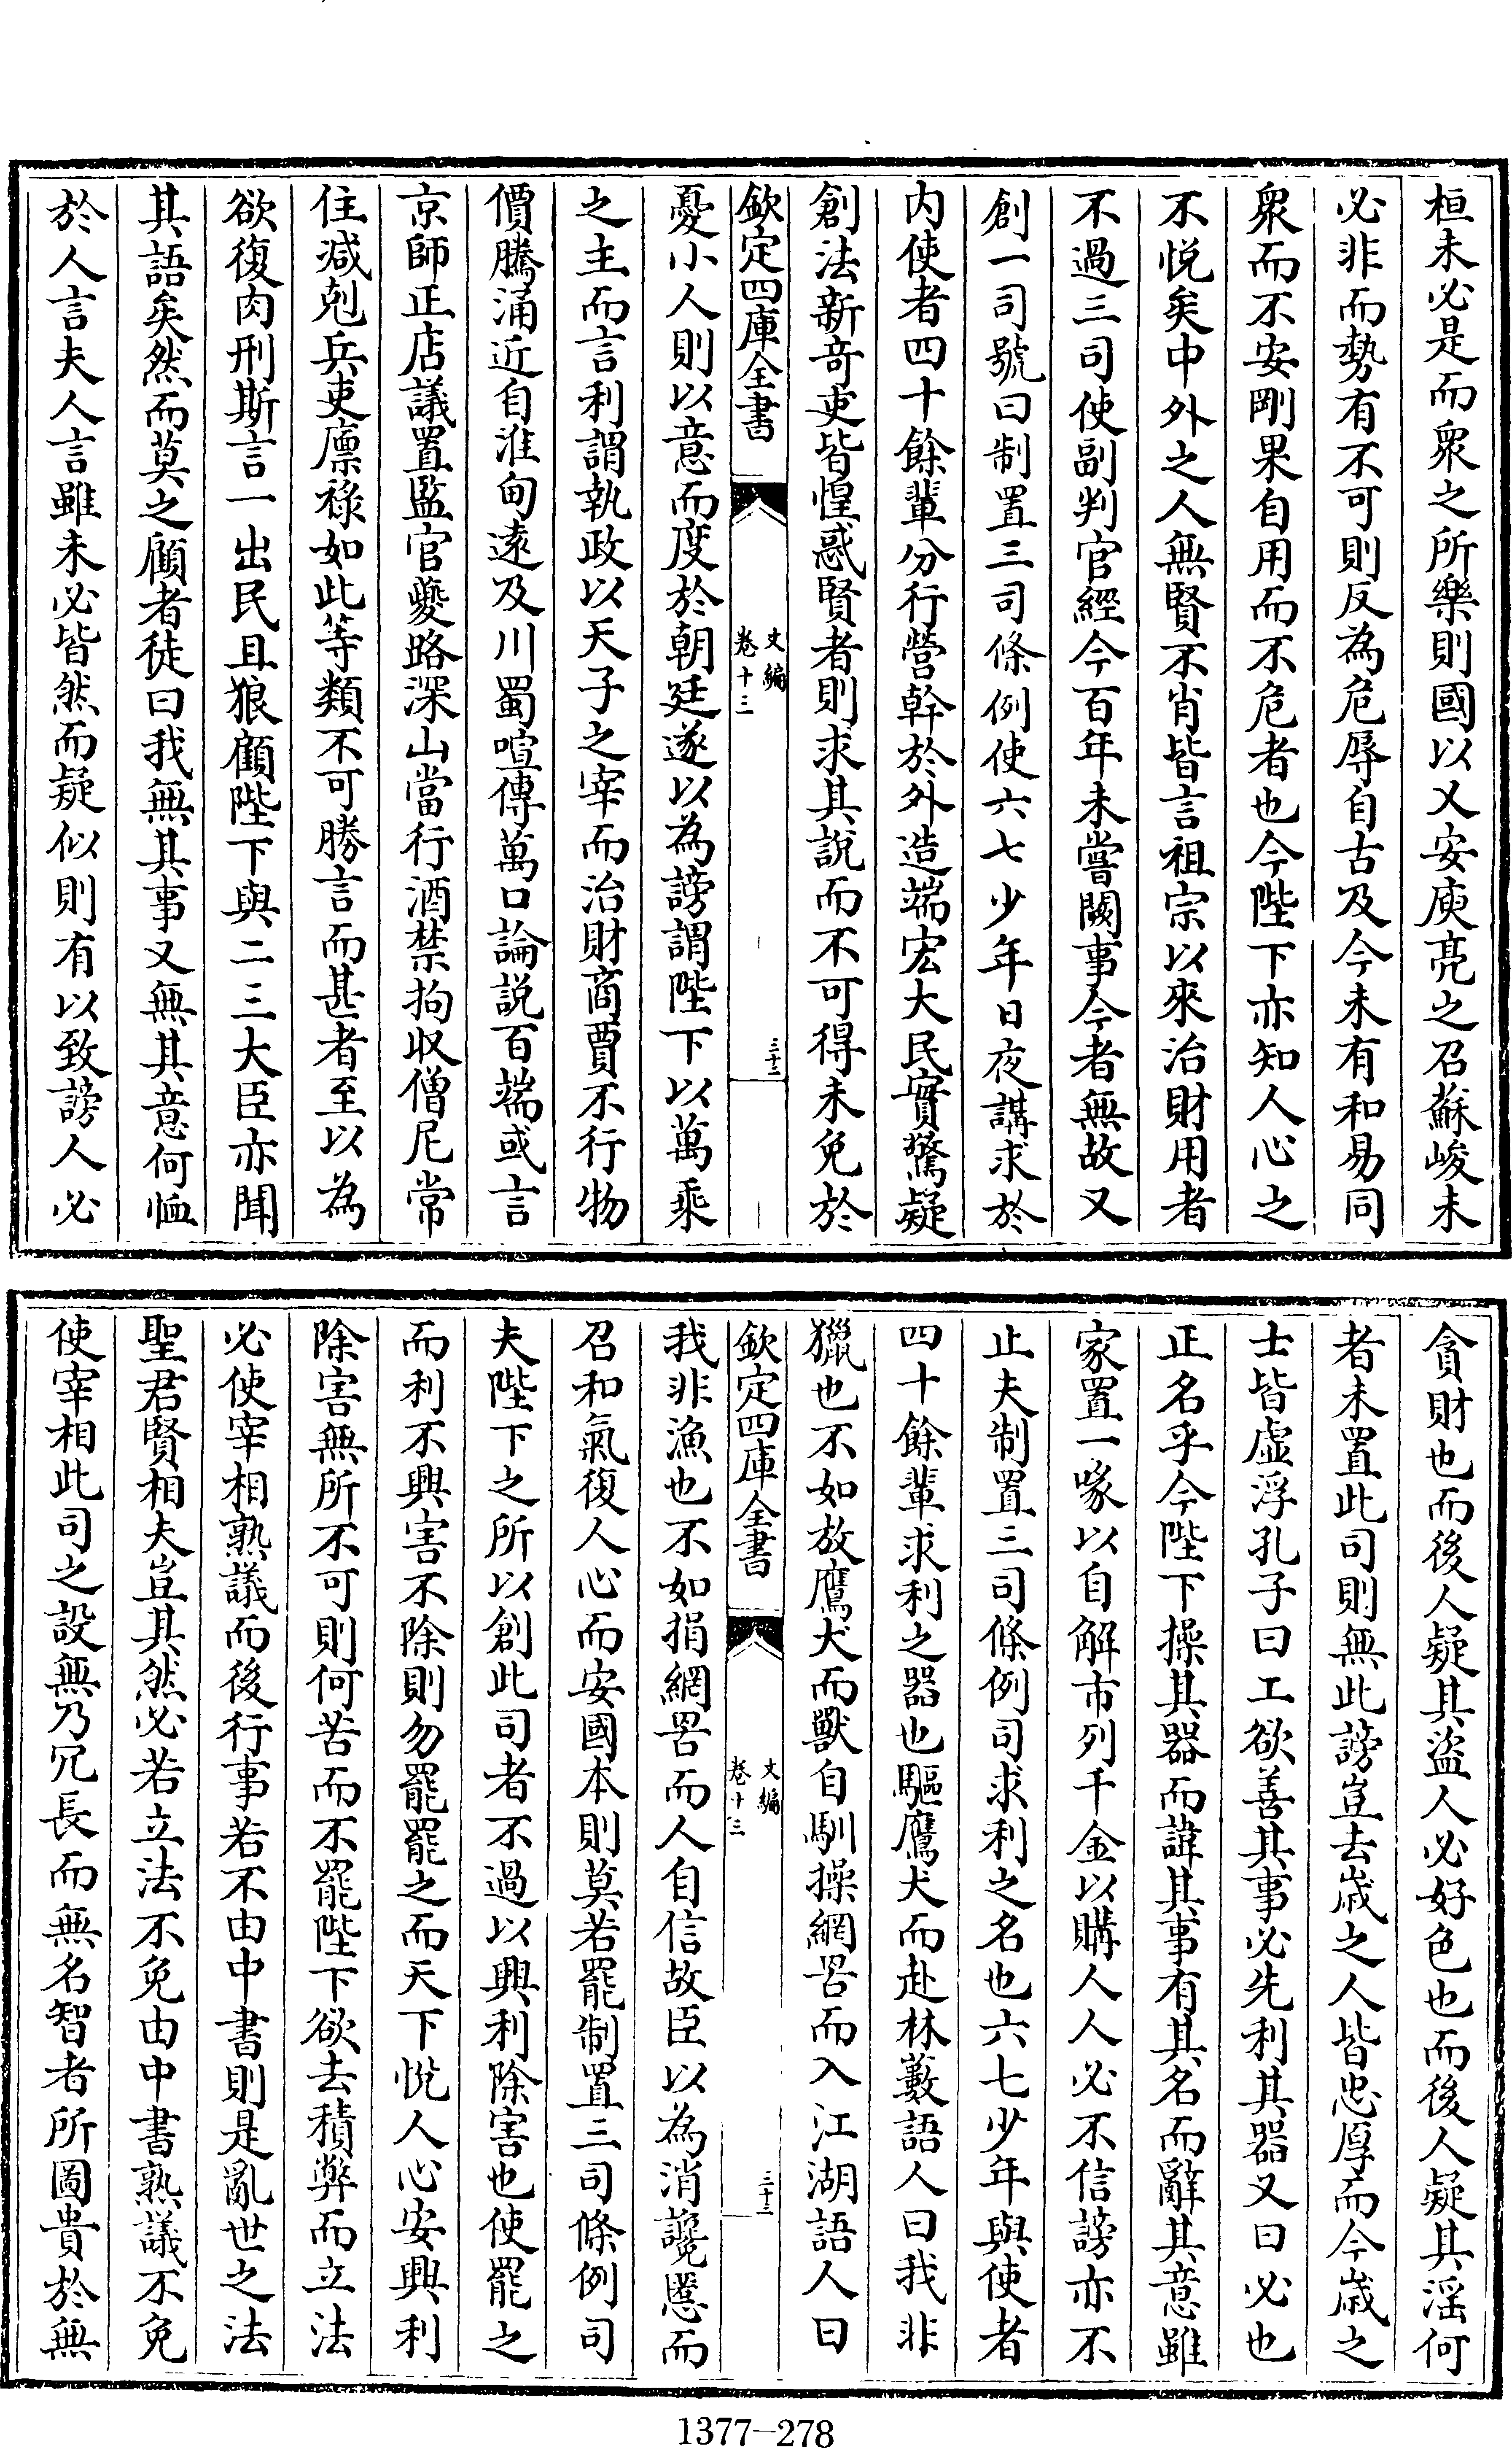 桓未必是而衆之所樂則國以乂安庾亮之召蘇峻未
必非而勢有不可則反為危辱自古及今未有和易同
衆而不安剛果自用而不危者也今陛下亦知人心之
不悦矣中外之人無賢不肖皆言祖宗以來治財用者
不過三司使副判官經今百年未嘗闕事今者無故又
創一司號曰制置三司條例使六七少年日夜講求於
内使者四十餘輩分行營幹於外造端宏大民實驚疑
創法新奇吏皆惶惑賢者則求其説而不可得未免於
欽定四庫全書
文編
卷十三
三十二
憂小人則以意而度於朝廷遂以為謗謂陛下以萬乘
之主而言利謂執政以天子之宰而治財商賈不行物
價騰涌近自淮甸遠及川蜀喧傳萬口論説百端或言
京師正店議置監官夔路深山當行酒禁拘収僧尼常
住減剋兵吏廩祿如此等類不可勝言而甚者至以為
欲復肉刑斯言一出民且狼顧陛下與二三大臣亦聞
其語矣然而莫之顧者徒曰我無其事又無其意何恤
於人言夫人言雖未必皆然而疑似則有以致謗人必
貪財也而後人疑其盜人必好色也而後人疑其淫何
者未置此司則無此謗豈去歲之人皆忠厚而今歲之
士皆虛浮孔子曰工欲善其事必先利其器又曰必也
正名乎今陛下操其器而諱其事有其名而辭其意雖
家置一喙以自解市列千金以購人人必不信謗亦不
止夫制置三司條例司求利之名也六七少年與使者
四十餘輩求利之器也驅鷹犬而赴林藪語人曰我非
獵也不如放鷹犬而獸自馴操網罟而入江湖語人曰
欽定四庫全書
文編
卷十三
三十二
我非漁也不如捐網罟而人自信故臣以為消讒慝而
召和氣復人心而安國本則莫若罷制置三司條例司
夫陛下之所以創此司者不過以興利除害也使罷之
而利不興害不除則勿罷罷之而天下悅人心安興利
除害無所不可則何苦而不罷陛下欲去積弊而立法
必使宰相熟議而後行事若不由中書則是亂世之法
聖君賢相夫豈其然必若立法不免由中書熟議不免
使宰相此司之設無乃冗長而無名智者所圖貴於無
1377-278